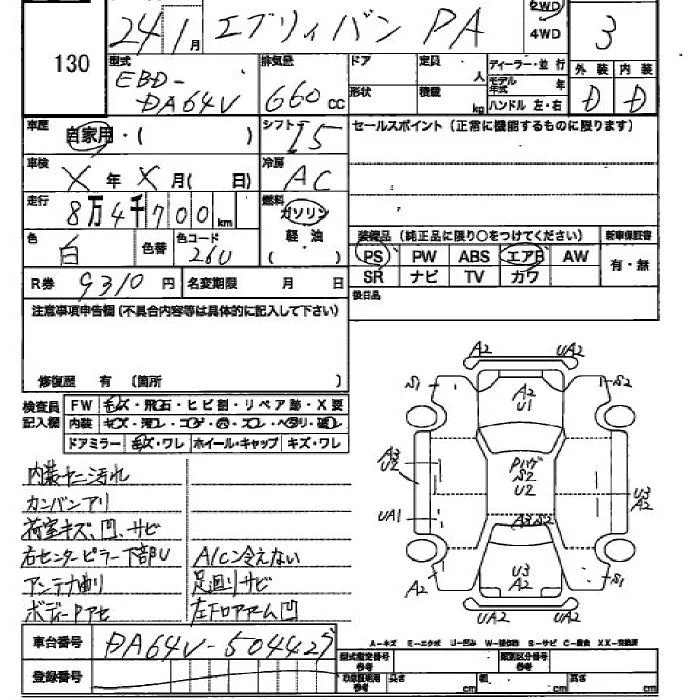 2WD
24 1月 エブリィバン PA 4WD 3
130
型式 EBD-DA64V 排気量 660 CC
ドア 定員 人 ディーラー・並行 外装 内装
形状 積載 kg モデル年式 年 D D
ハンドル 左・右
車歴 自家用・( ) シフト I5 セールスポイント(正常に機能するものに限ります)
車検 X 年 X 月( 日) 冷房 AC
走行 8万4千700km 燃料 ガソリン
軽油
( )
色 白 色替 色コード 26U
装備品(純正品に限り○をつけてください) 新車保証書
PS PW ABS エアB AW 有・無
SR ナビ TV カワ
R券 9310円 名変期限 月 日 後日品
注意事項申告欄(不具合内容等は具体的に記入して下さい)
修復歴 有 (箇所 )
検査員記入欄 FW キズ・飛石・ヒビ割・リペア跡・X要
内装 キズ・汚レ・コゲ・穴・スレ・ヘタリ・破レ
ドアミラー キズ・ワレ ホイール・キャップ キズ・ワレ
内装ヤニ汚れ
カンバンアリ
荷室キズ、凹、サビ
右センターピラー下部U A/Cン冷えない
アンテナ曲り 足廻りサビ
ボディーPアセ 左Fロアアーム凹
A2 UA2
S1 A2 U1 S2
A3 U2 Pハゲ S2 U2
UA1 U3 A2
A3 S2
A2 U3 A2 S1
UA2 UA2
車台番号 DA64V-504425
A-キズ E-エクボ U-凹み W-補修跡 S-サビ C-腐食 XX-交換済
登録番号
型式指定番号 参考 類別区分番号 参考
参考 長さ cm 幅 cm 高さ cm